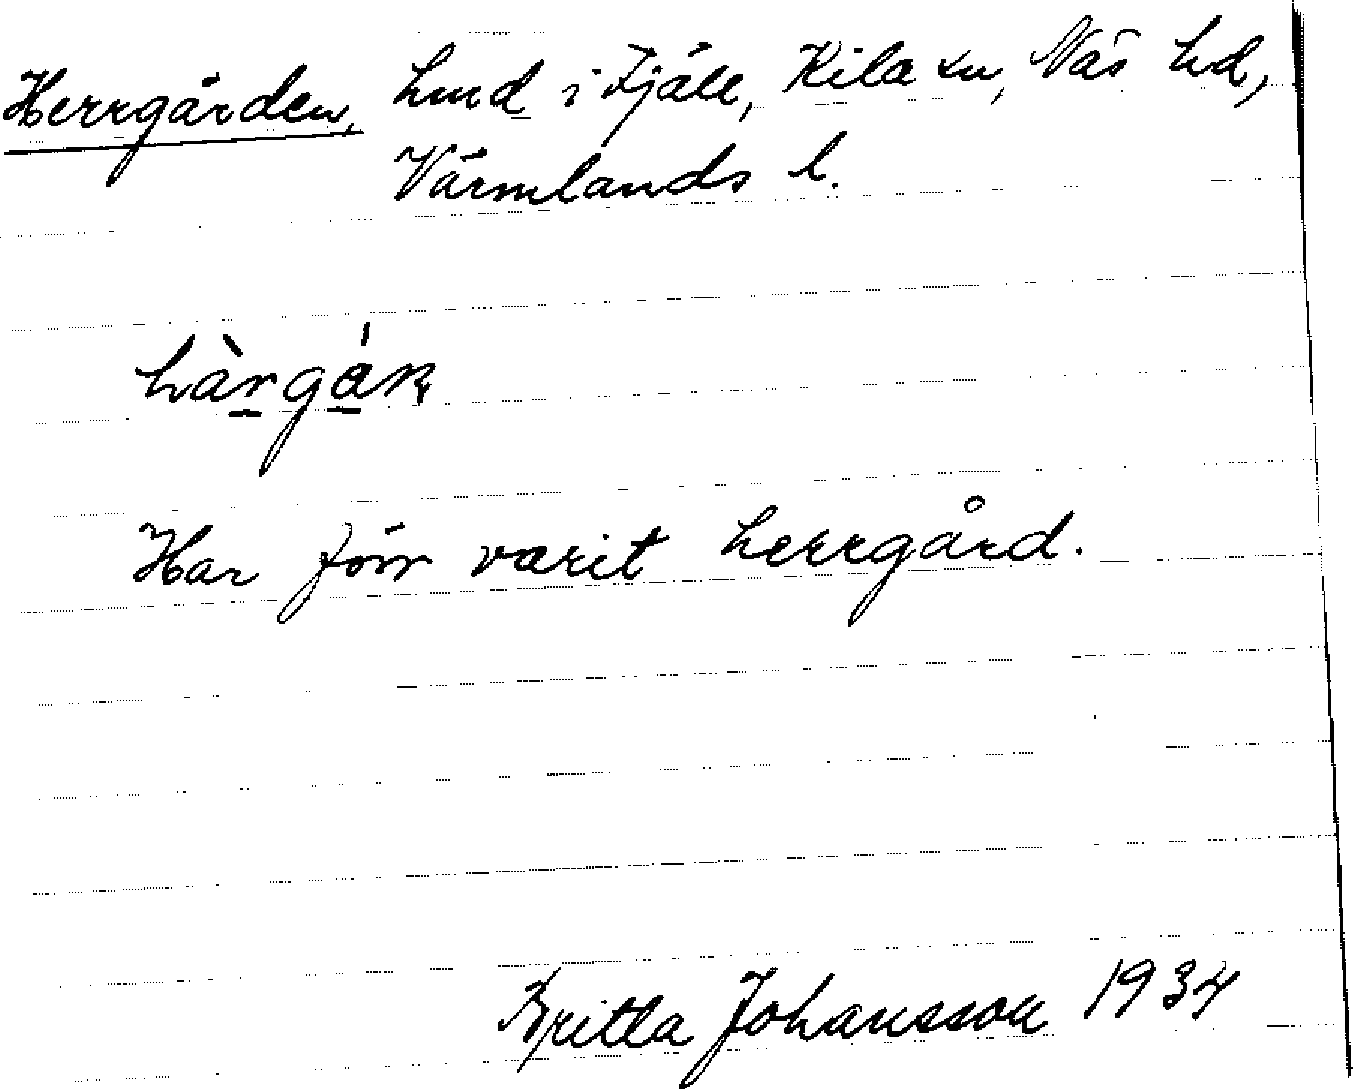 Herrgården, hmd i Fjäll, Kila sn, Näs hd,
Värmlands l.
hàrgán
Har förr varit herrgård.
Britta Johansson 1934